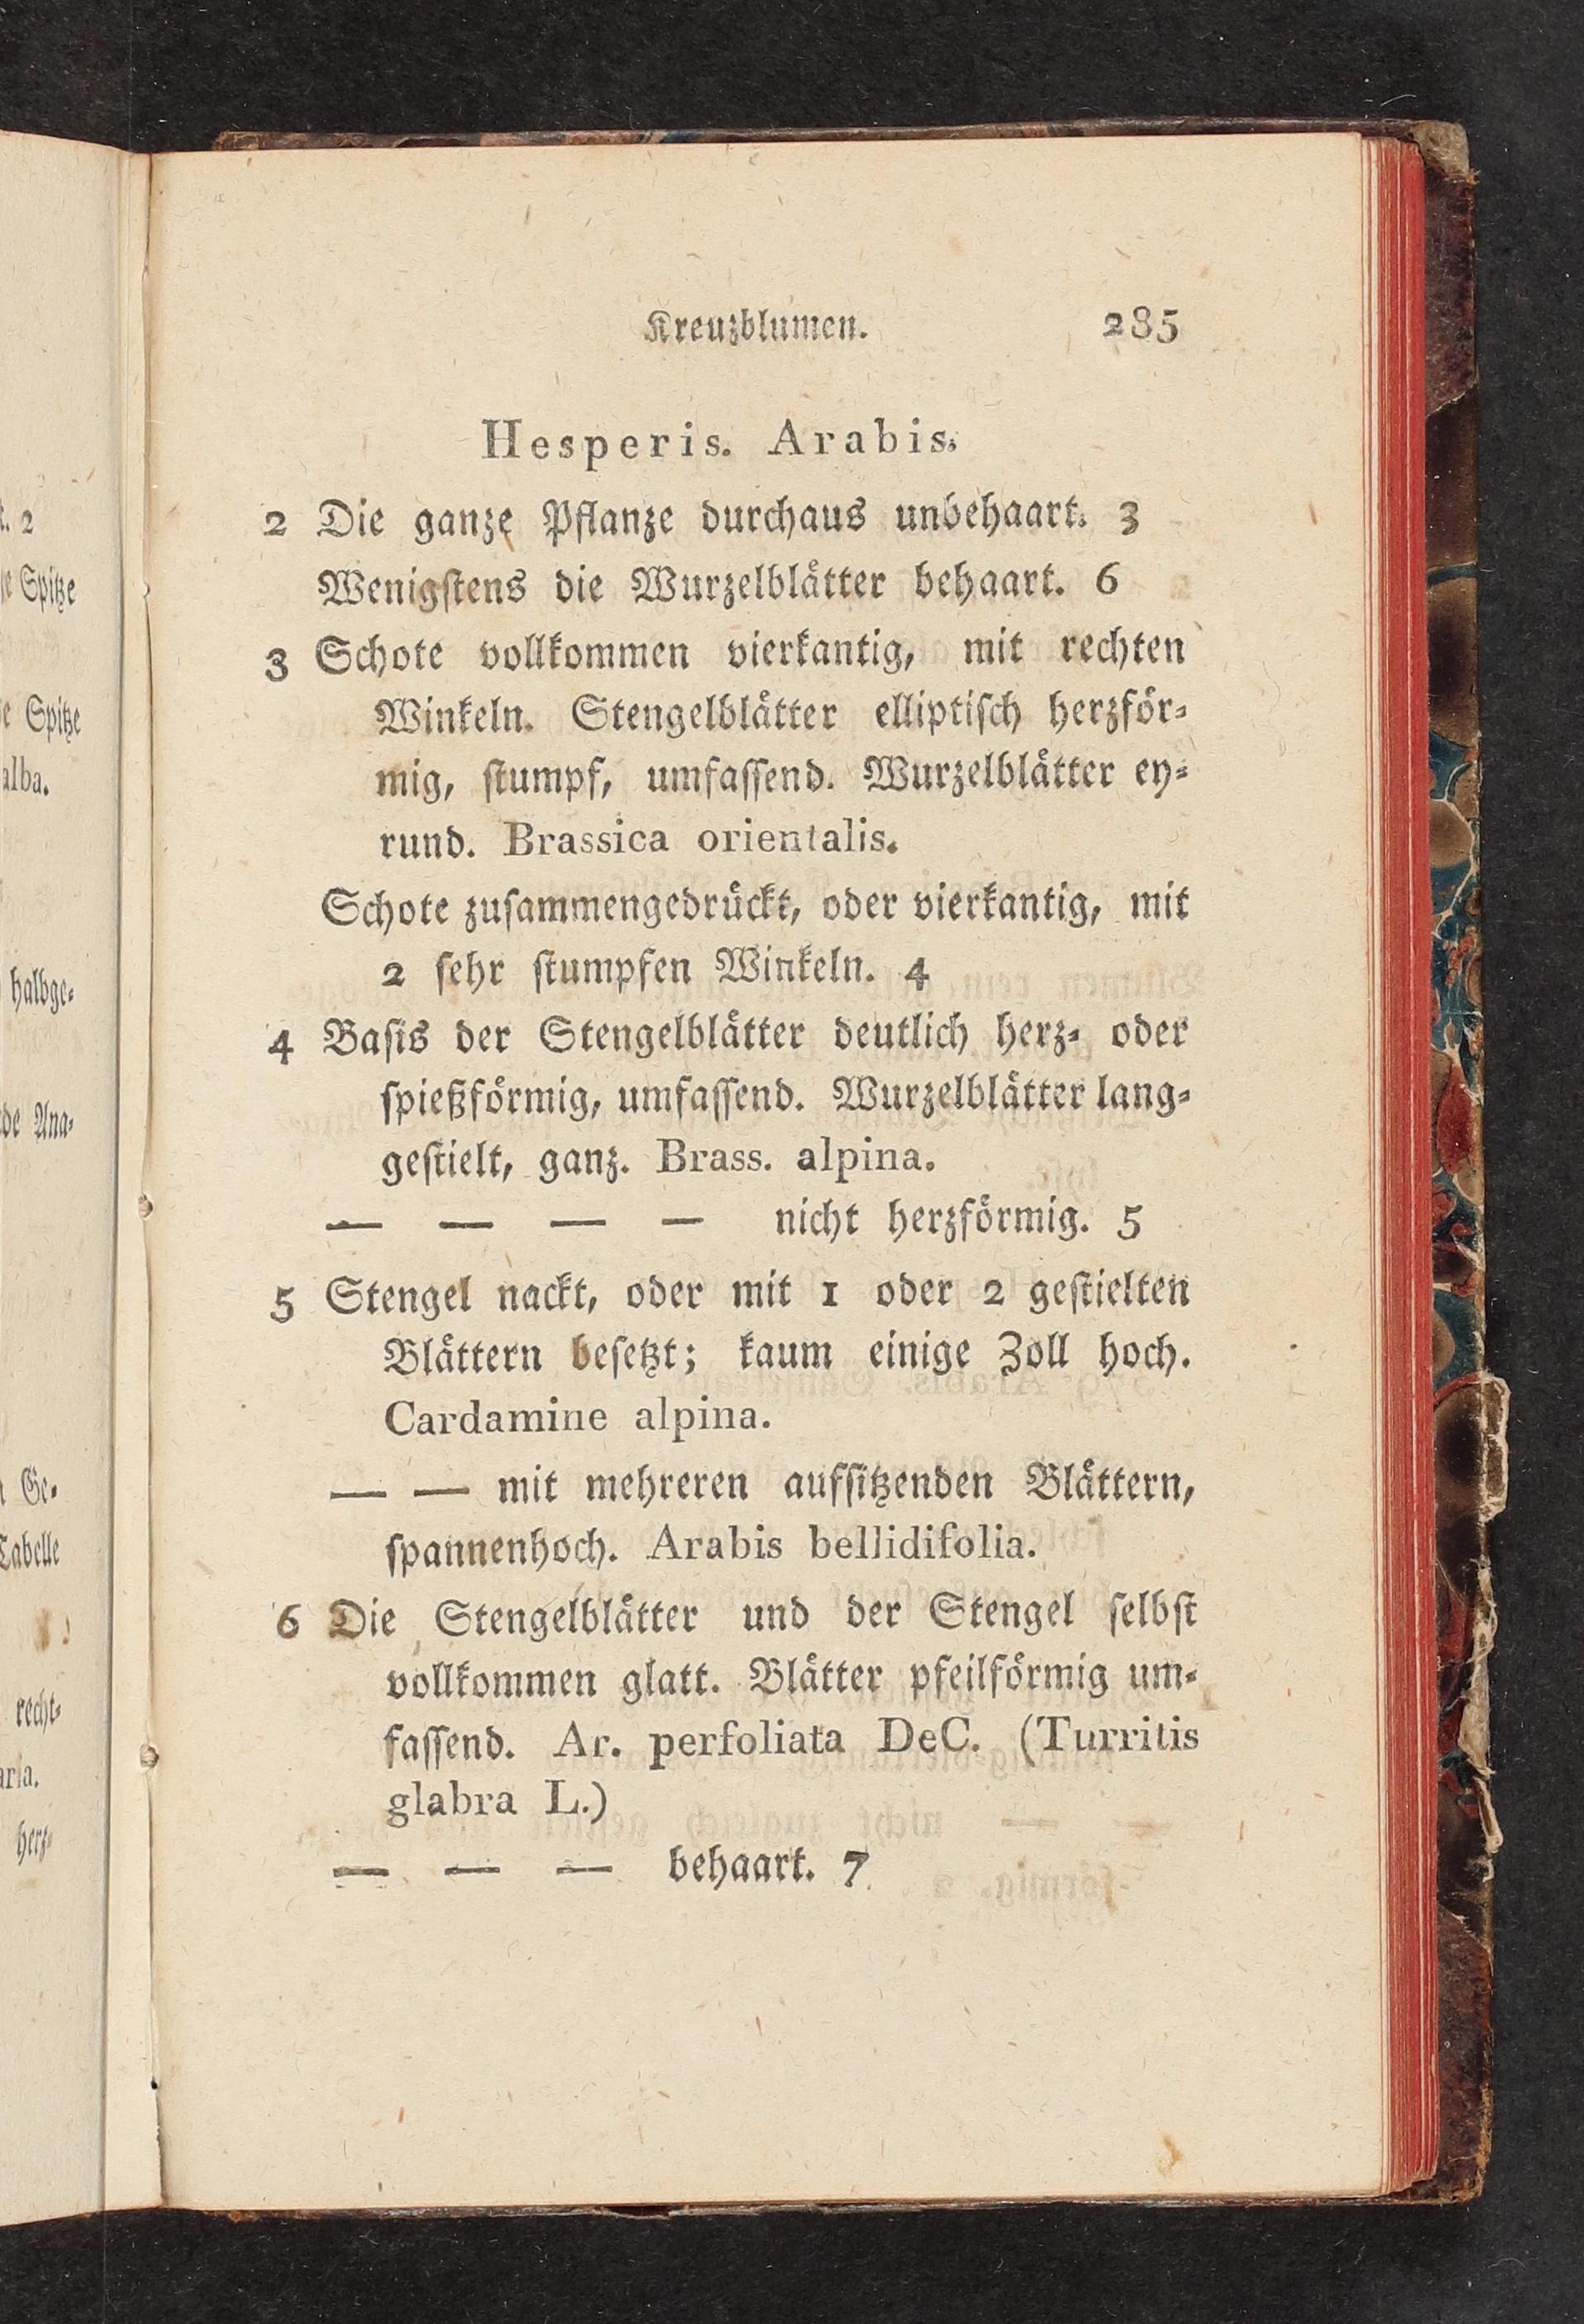 Kreuzblumen. 285
Hesperis. Arabis.
2 Die ganze Pflanze durchaus unbehaart. 3
Wenigſtens die Wurzelblätter behaart. 6
3 Schote vollkommen vierkantig, mit rechten
Winkeln. Stengelblätter elliptiſch herzför-
mig, ſtumpf, umfaſſend. Wurzelblätter ey-
rund. Brassica orientalis.
Schote zuſammengedrückt, oder vierkantig, mit
2 ſehr ſtumpfen Winkeln. 4
4 Baſis der Stengelblätter deutlich herz- oder
ſpießförmig, umfaſſend. Wurzelblätter lang-
geſtielt, ganz. Brass. alpina.
— — — — nicht herzförmig. 5
5 Stengel nackt, oder mit 1 oder 2 geſtielten
Blättern beſetzt; kaum einige Zoll hoch.
Cardamine alpina.
— — mit mehreren aufſitzenden Blättern,
ſpannenhoch. Arabis bellidifolia.
6 Die Stengelblätter und der Stengel ſelbſt
vollkommen glatt. Blätter pfeilförmig um-
faſſend. Ar. perfoliata DeC. (Turritis
glabra L.)
— — — behaart. 7
. 2
Spitze
Spitze
alba.
halbge-
Ana-
Ge-
Tabelle
recht-
aria.
herz-